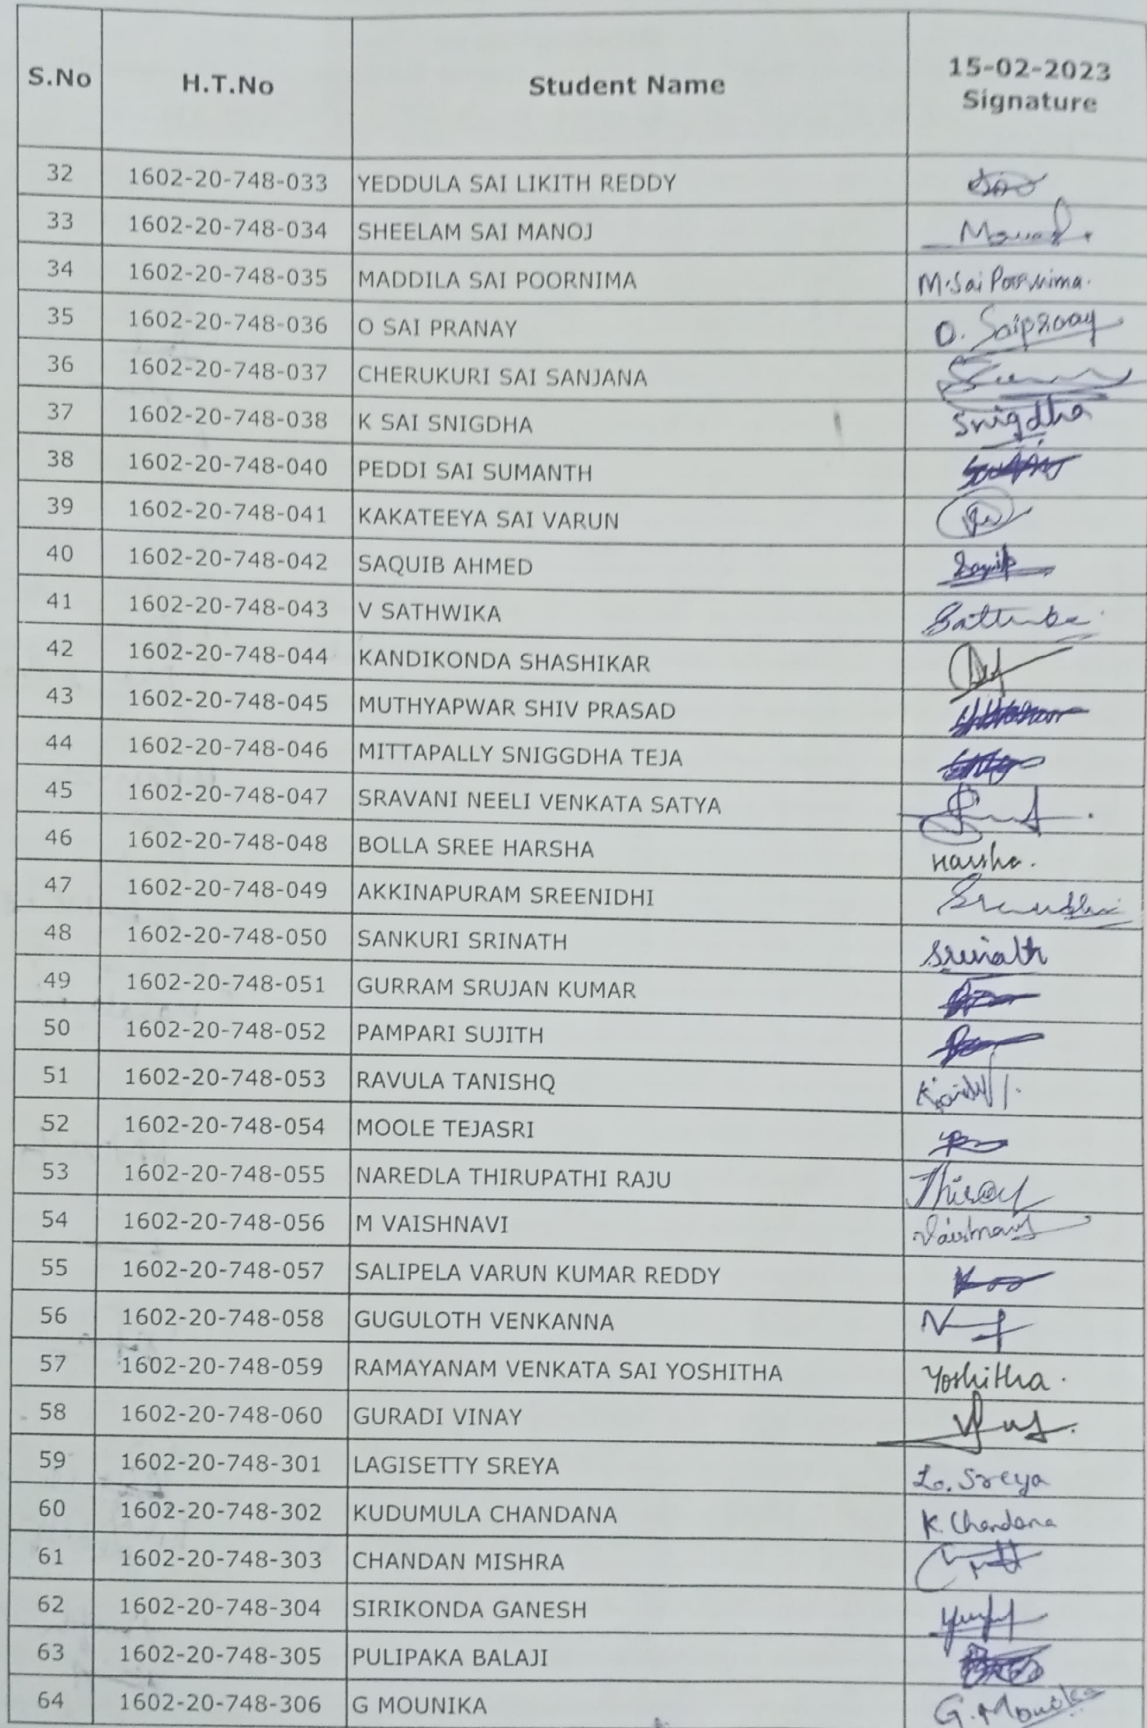 S.No H.T.No Student Name 15-02-2023 Signature
32 1602-20-748-033 YEDDULA SAI LIKITH REDDY
33 1602-20-748-034 SHEELAM SAI MANOJ
34 1602-20-748-035 MADDILA SAI POORNIMA M.Sai Poornima.
35 1602-20-748-036 O SAI PRANAY O. Saipranay
36 1602-20-748-037 CHERUKURI SAI SANJANA
37 1602-20-748-038 K SAI SNIGDHA Snigdha
38 1602-20-748-040 PEDDI SAI SUMANTH
39 1602-20-748-041 KAKATEEYA SAI VARUN
40 1602-20-748-042 SAQUIB AHMED
41 1602-20-748-043 V SATHWIKA
42 1602-20-748-044 KANDIKONDA SHASHIKAR
43 1602-20-748-045 MUTHYAPWAR SHIV PRASAD
44 1602-20-748-046 MITTAPALLY SNIGGDHA TEJA
45 1602-20-748-047 SRAVANI NEELI VENKATA SATYA
46 1602-20-748-048 BOLLA SREE HARSHA Harsha.
47 1602-20-748-049 AKKINAPURAM SREENIDHI
48 1602-20-748-050 SANKURI SRINATH Srinath
49 1602-20-748-051 GURRAM SRUJAN KUMAR
50 1602-20-748-052 PAMPARI SUJITH
51 1602-20-748-053 RAVULA TANISHQ
52 1602-20-748-054 MOOLE TEJASRI
53 1602-20-748-055 NAREDLA THIRUPATHI RAJU
54 1602-20-748-056 M VAISHNAVI Vaishnavi
55 1602-20-748-057 SALIPELA VARUN KUMAR REDDY
56 1602-20-748-058 GUGULOTH VENKANNA
57 1602-20-748-059 RAMAYANAM VENKATA SAI YOSHITHA Yoshitha.
58 1602-20-748-060 GURADI VINAY
59 1602-20-748-301 LAGISETTY SREYA L. Sreya
60 1602-20-748-302 KUDUMULA CHANDANA K. Chandana
61 1602-20-748-303 CHANDAN MISHRA
62 1602-20-748-304 SIRIKONDA GANESH
63 1602-20-748-305 PULIPAKA BALAJI
64 1602-20-748-306 G MOUNIKA G. Mounika